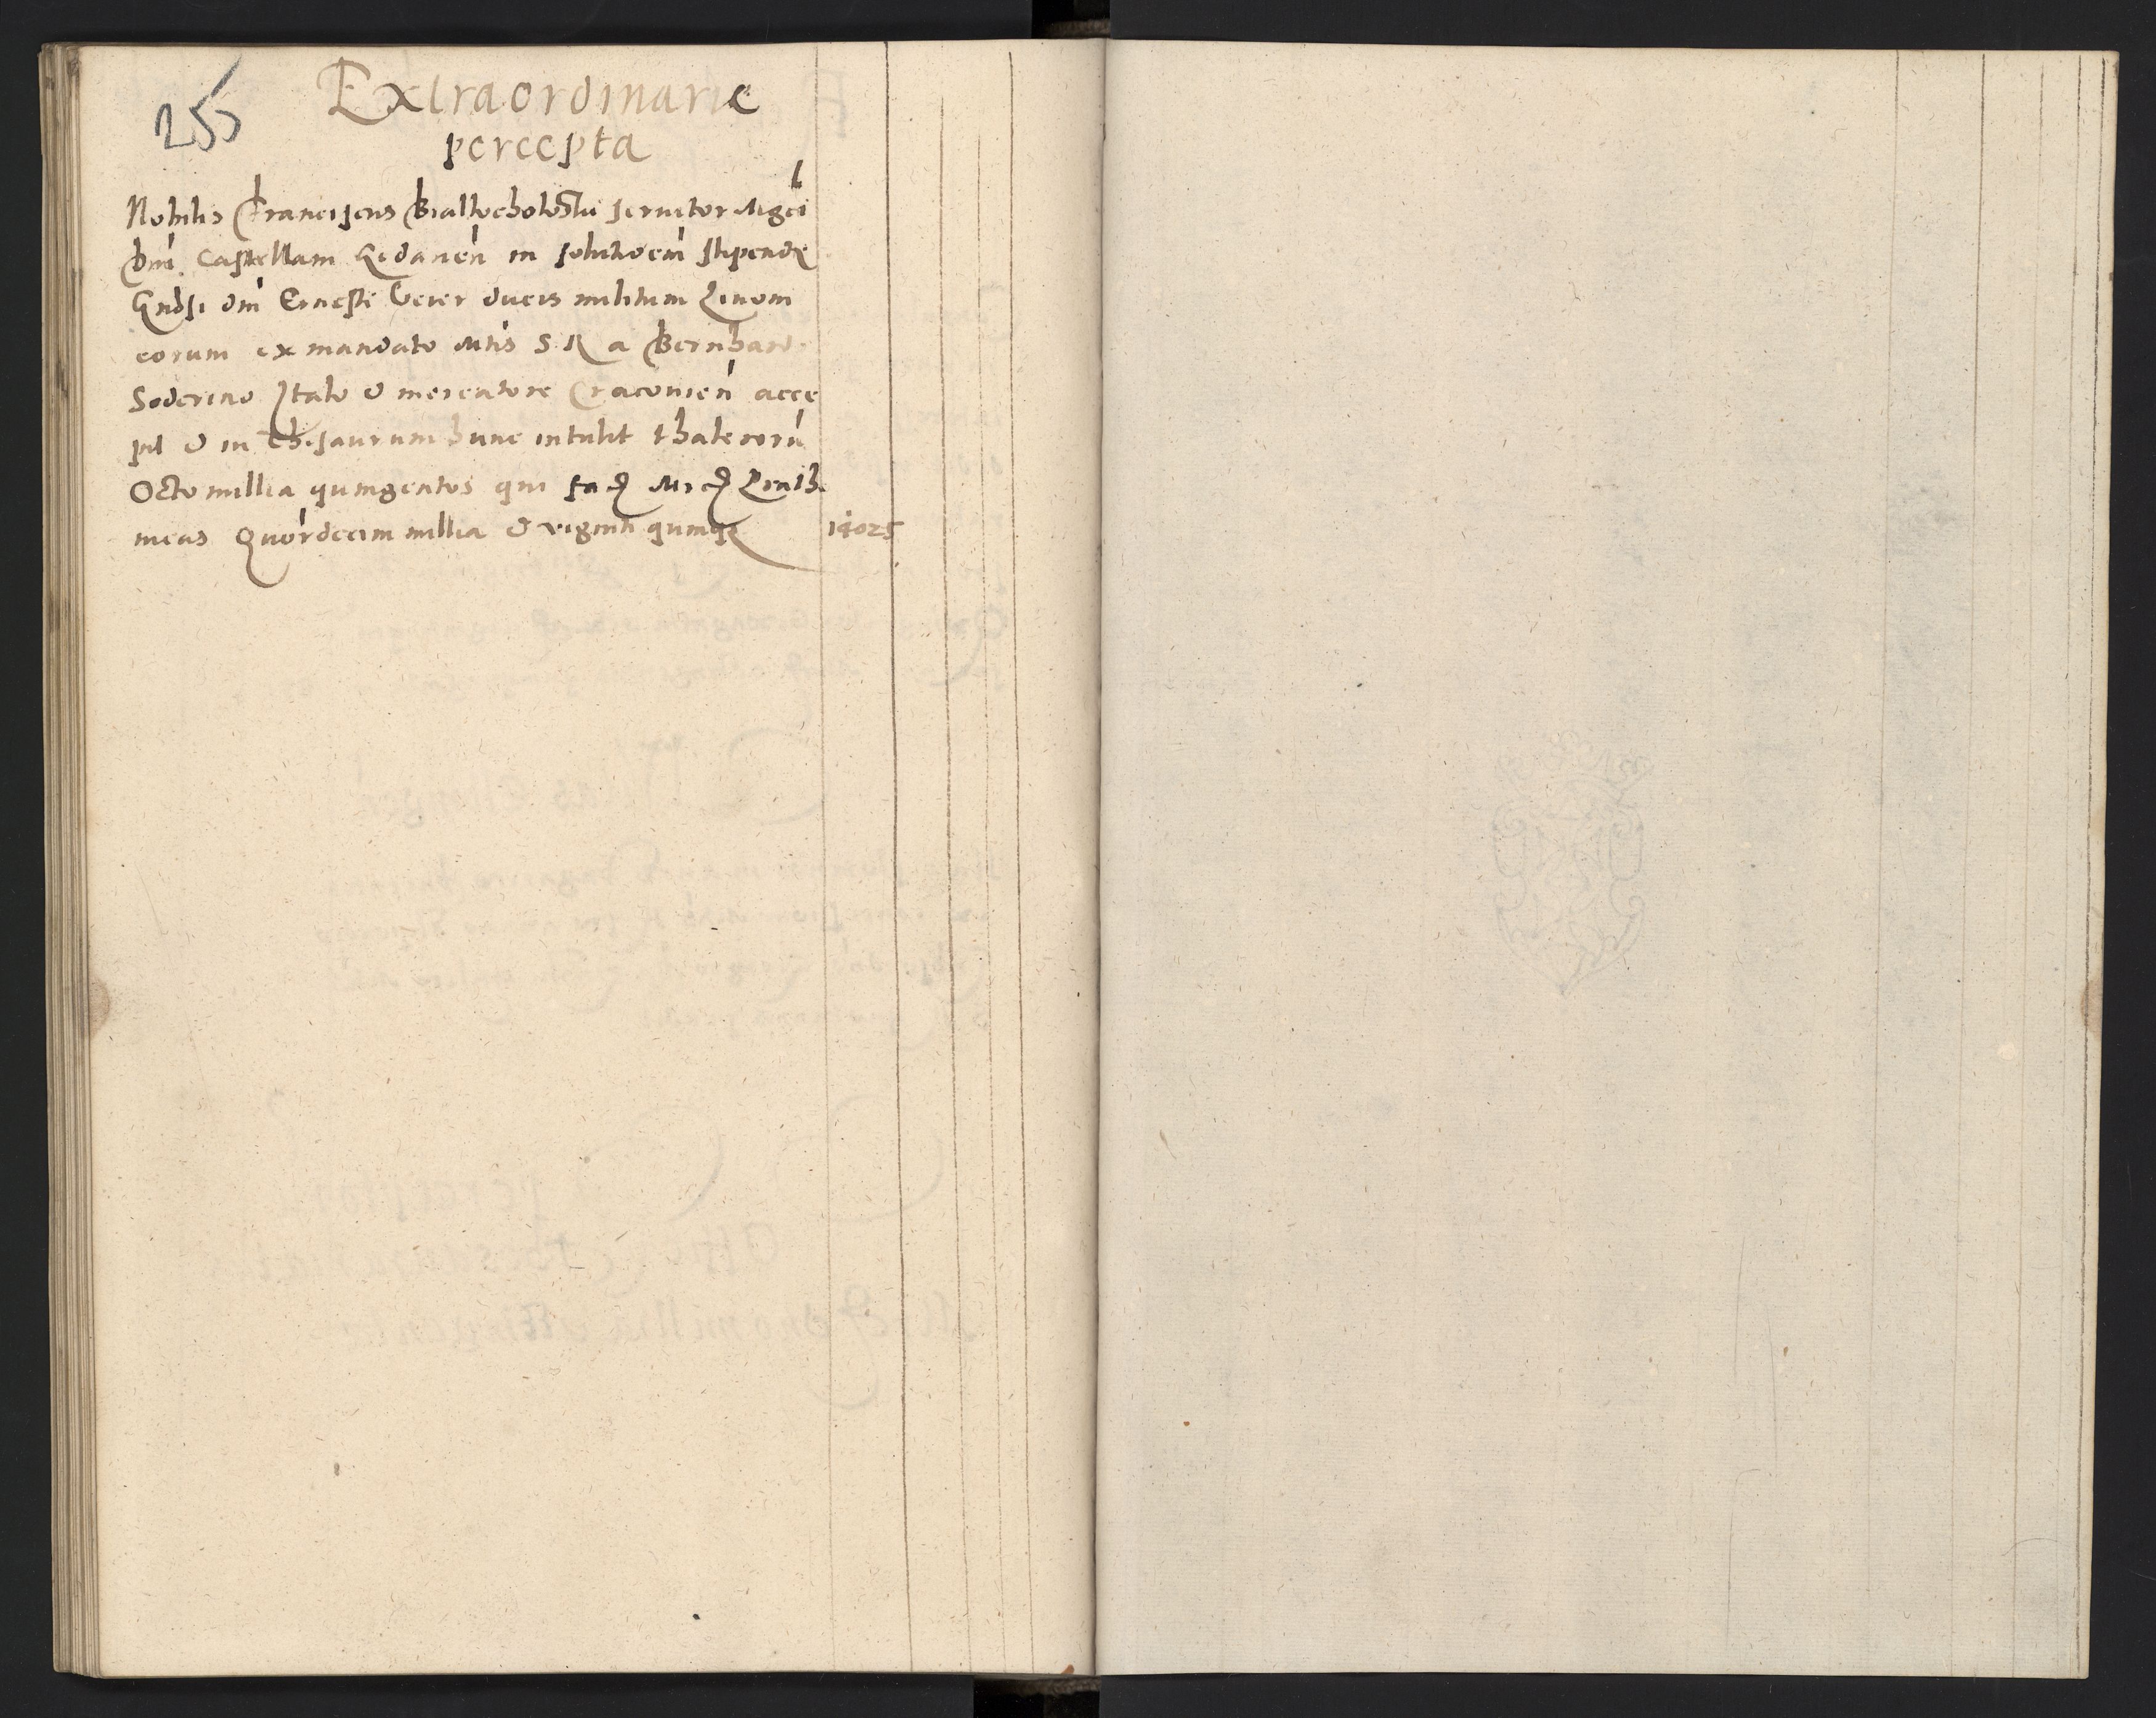 255
Extraordinarie
percepta
Nobilis Franciscus servitor Mgci
Dni Castellani Gedanen in solutioem stipend
Gnosi dni Ernesti Veier ducis militum Livoni
corum ex mandato Mtis S R a Bernhard
Soderino Italo & mercatore Cracovien acce
pit & in Thesaurum hunc intulit thalerorū
Octo millia quingentos qui
meas Quordecim millia & viginti quinqz 14025